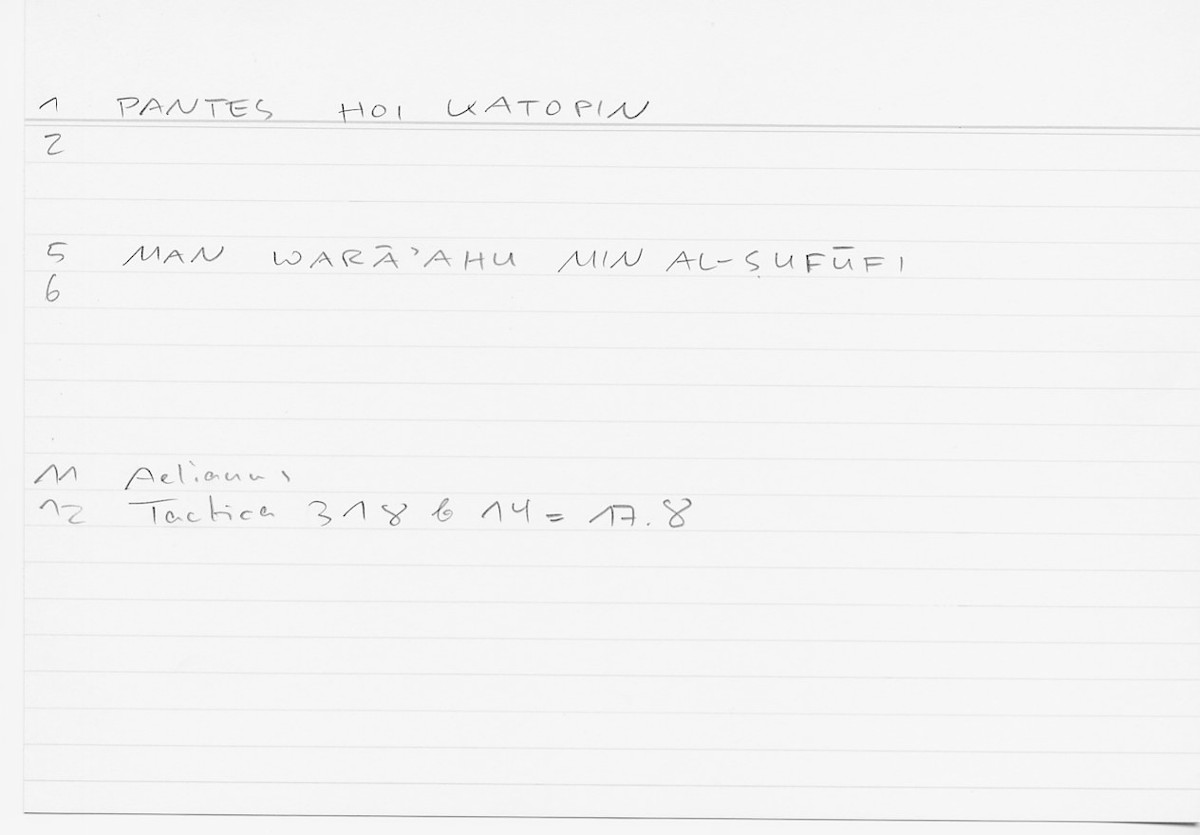 1 PANTES HOI KATOPIN
2
5 MAN WARĀ'AHU MIN AL-ṢUFŪFI
6
11 Aelianus
12 Tactica 318 b 14 = 17.8